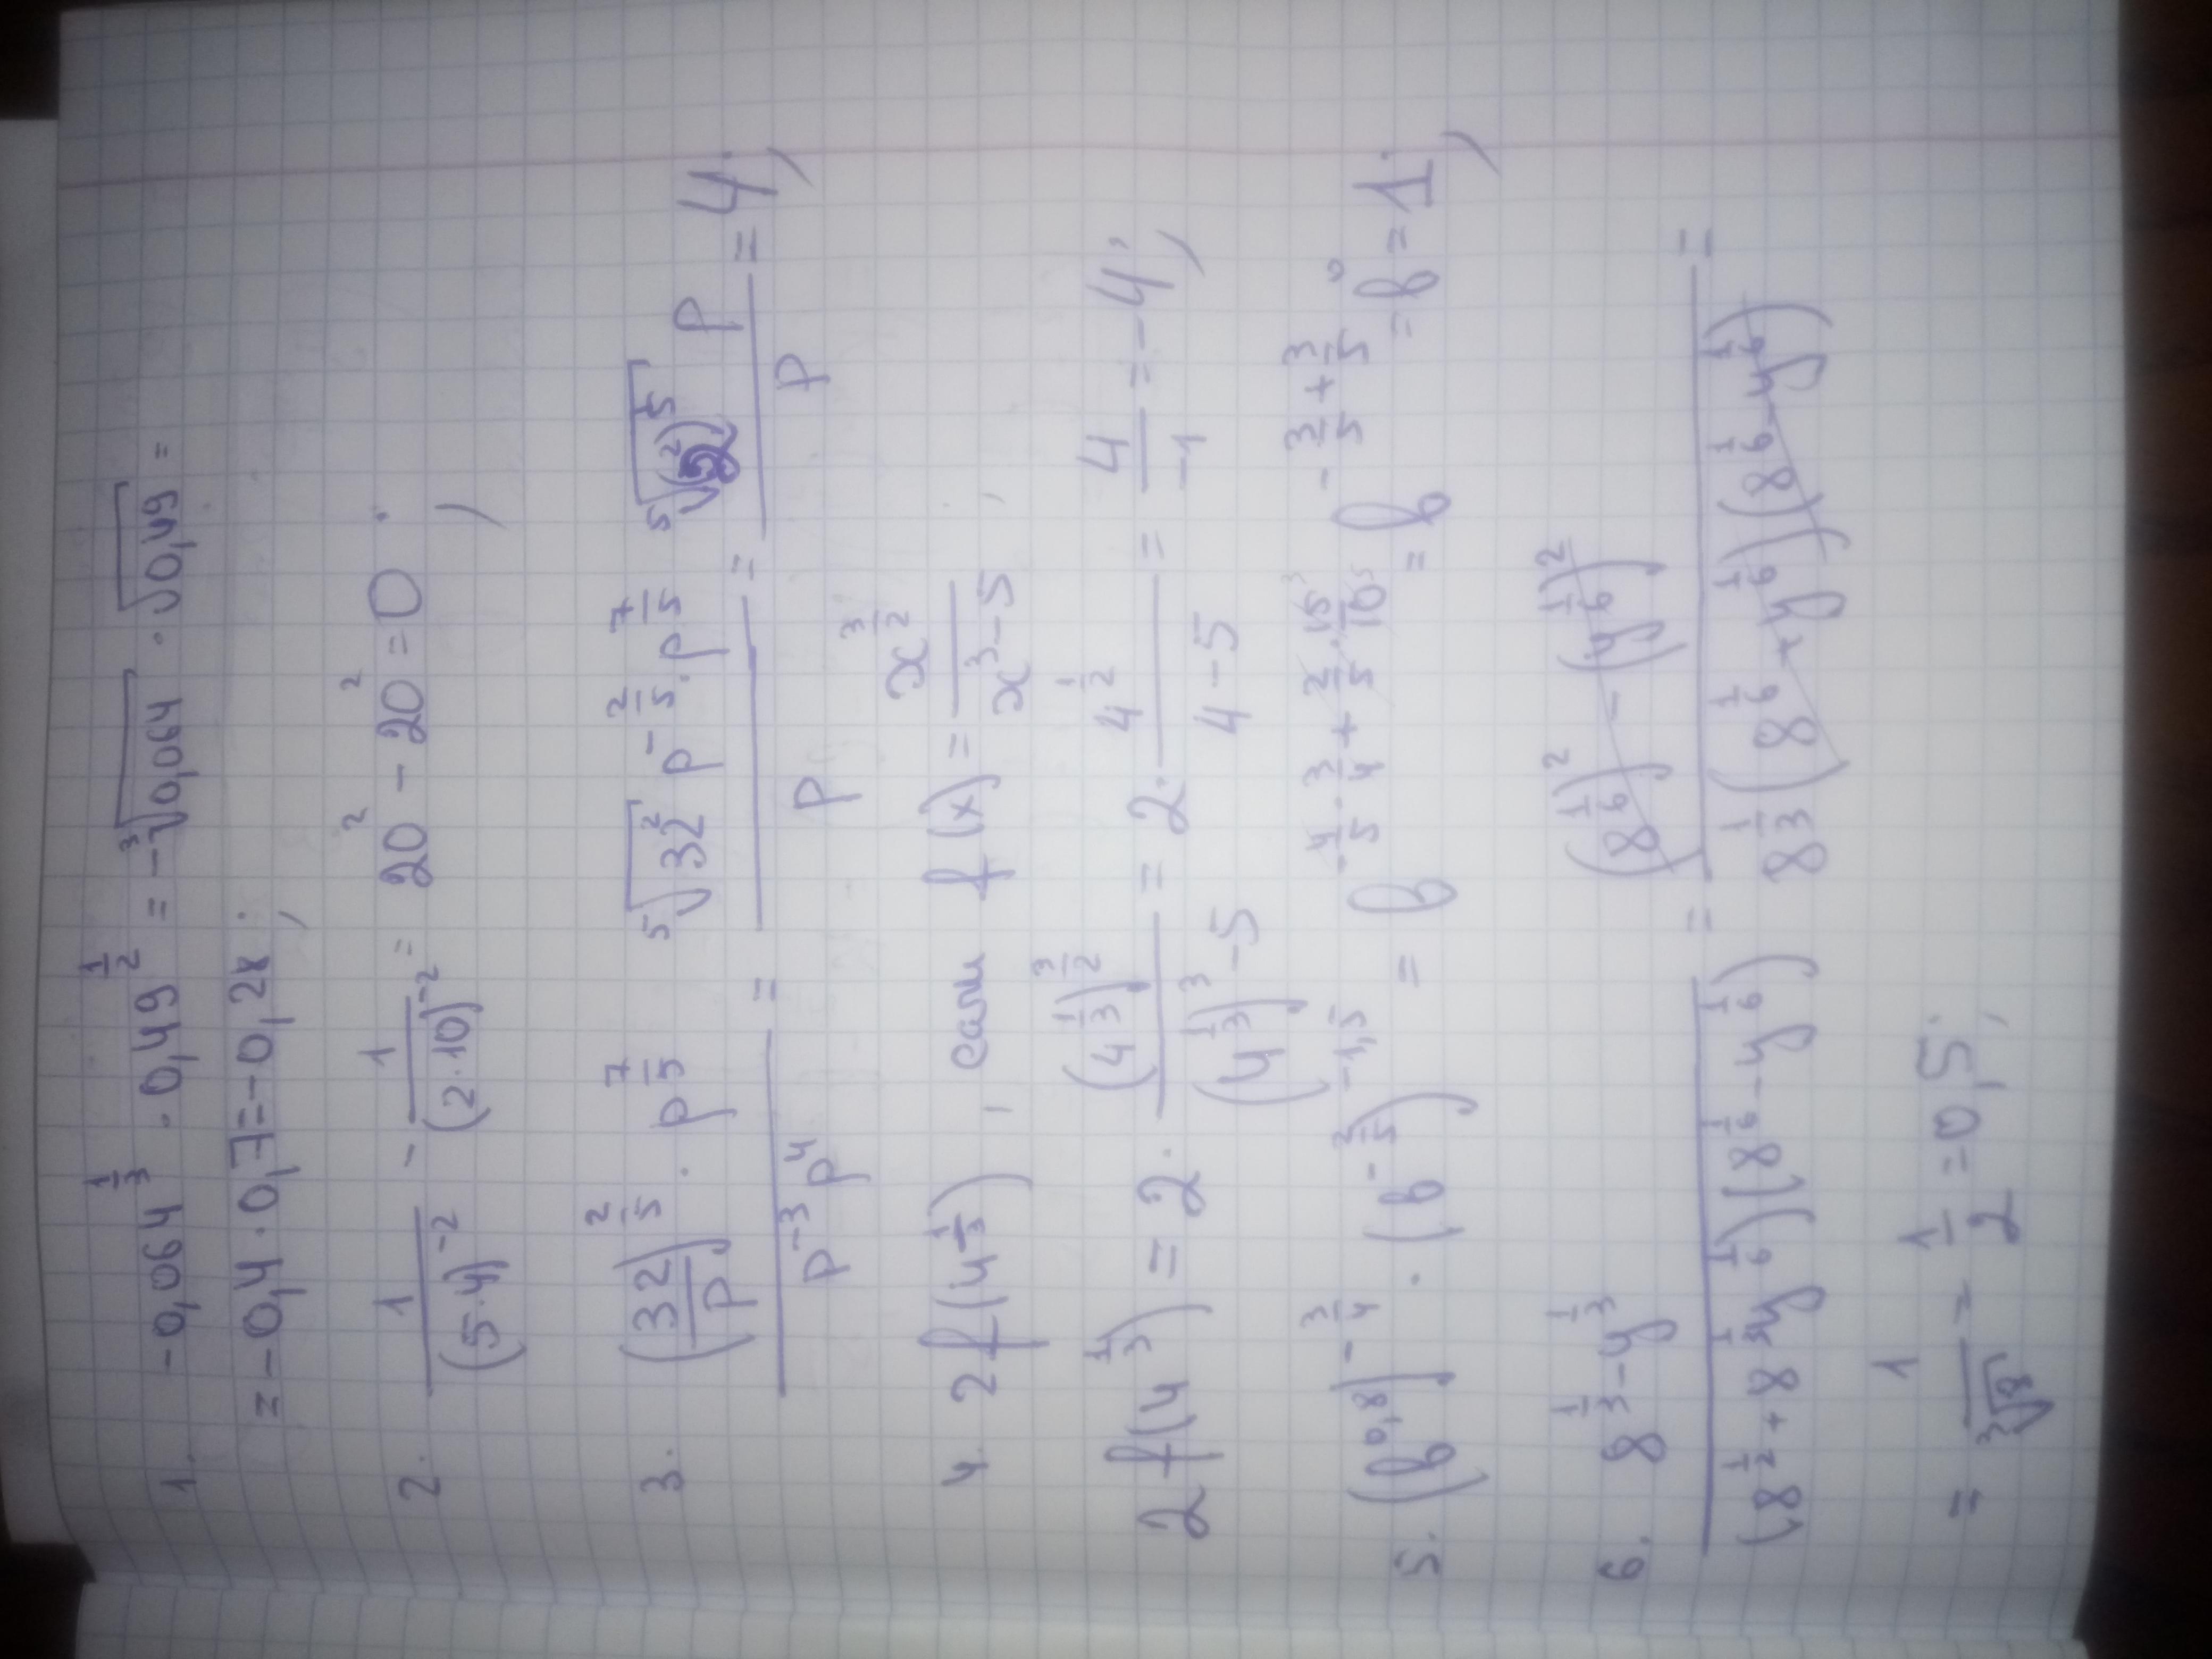 1. -0,064^{1/3} · 0,49^{1/2} = -∛0,064 · √0,49 =
= -0,4 · 0,7 = -0,28;
2. 1/(5·4)^{-2} - 1/(2·10)^{-2} = 20² - 20² = 0;
3. ((32/p)^{2/5} · p^{7/5})/(p^{-3} p^4) = (⁵√32² p^{-2/5} · p^{7/5})/p = (⁵√(2²)^5 p)/p = 4;
4. 2f(4^{1/3}), если f(x) = x^{3/2}/(x³-5);
2f(4^{1/3}) = 2 · (4^{1/3})^{3/2}/((4^{1/3})³-5) = 2 · 4^{1/2}/(4-5) = 4/-1 = -4;
5. (b^{0,8})^{-3/4} · (b^{-2/5})^{-1,5} = b^{-4/5 · 3/4 + 2/5 · 15/10} = b^{-3/5 + 3/5} = b^0 = 1;
6. (8^{1/3} - y^{1/3})/((8^{1/2} + 8^{1/3}y^{1/6})(8^{1/6} - y^{1/6})) = ((8^{1/6})² - (y^{1/6})²)/(8^{1/3}(8^{1/6} + y^{1/6})(8^{1/6} - y^{1/6})) =
= 1/∛8 = 1/2 = 0,5;